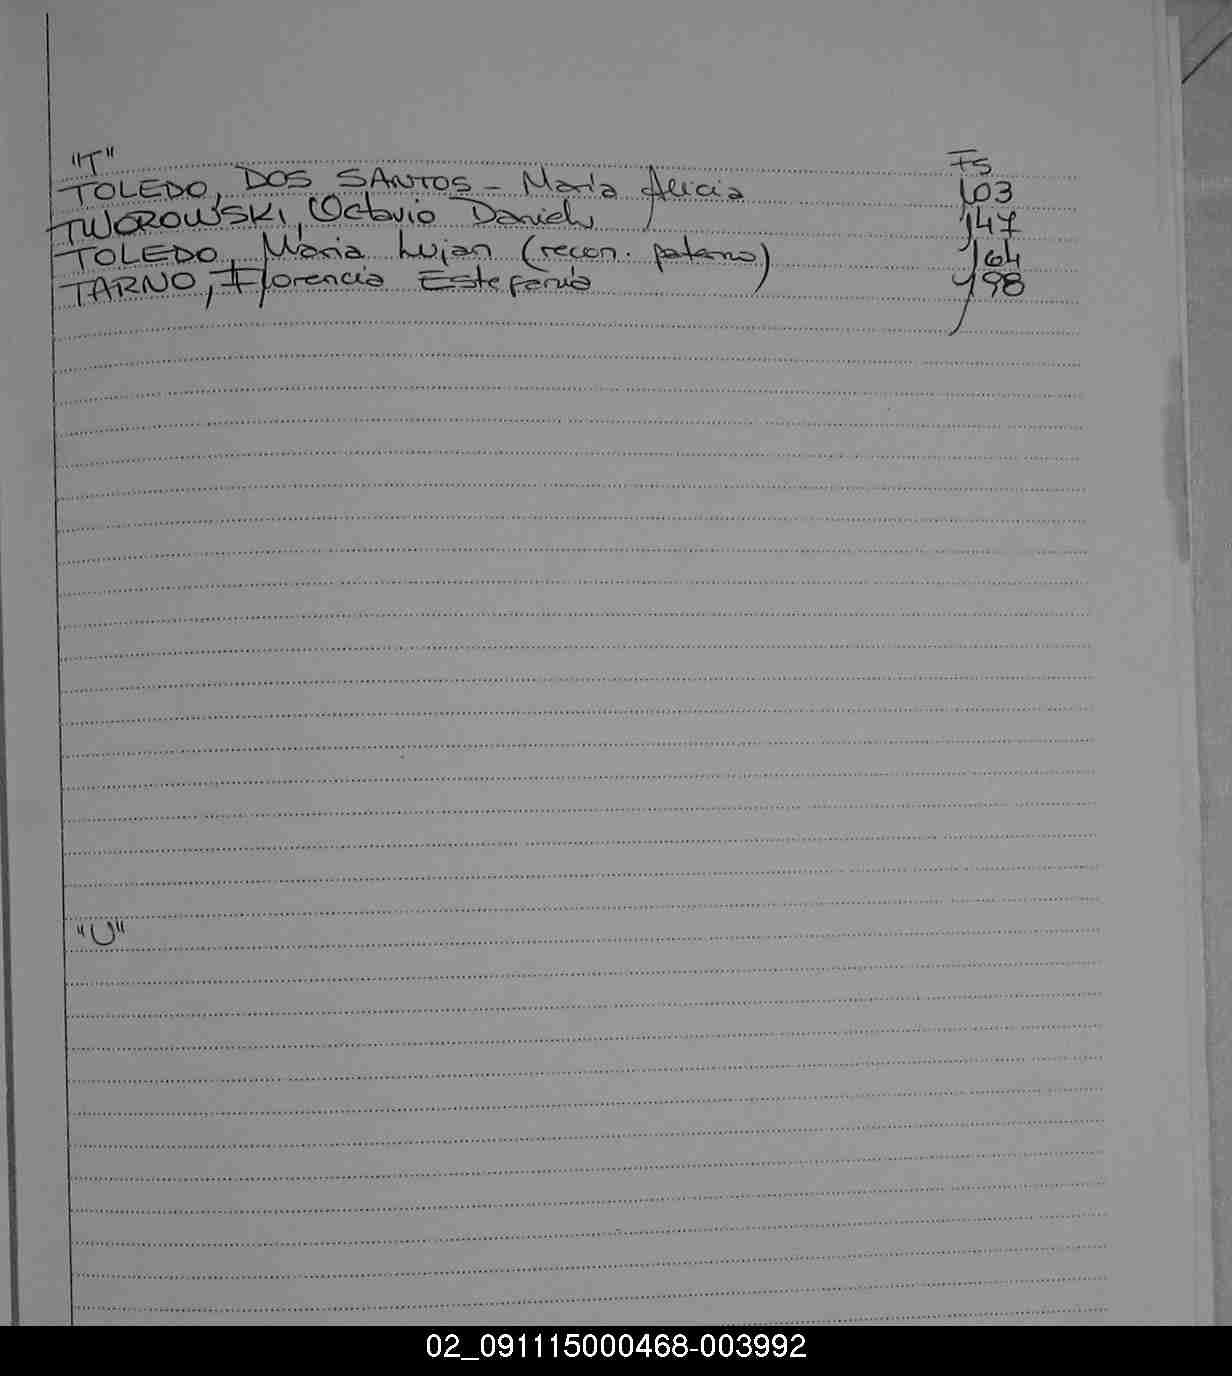 "T" Fs
TOLEDO, DOS SANTOS - María Alicia 103
TWOROWSKI, Octavio Daniel 147
TOLEDO, María Lujan (recon. paterno) 164
TARNO, Florencia Estefanía 198
"U"
02_091115000468-003992